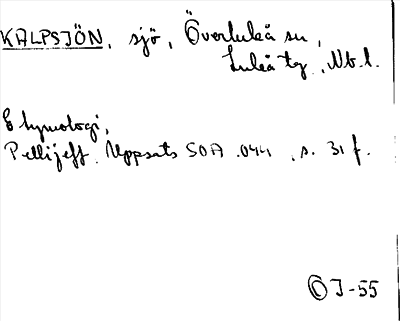 KALPSJÖN, sjö, Överluleå sn,
Luleå tg, Nb. l.
Etymologi,
Pellijeff. Uppsats SOA 044, s. 31 f.
Ⓛ J-55